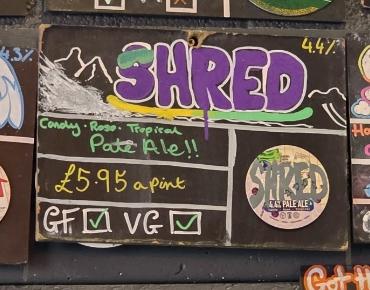 4.3%
4.4%
SHRED
Candy · Rose · Tropical
Pale Ale!!
£5.95 a pint
GF ☑ VG ☑
SHRED
4.4% PALE ALE
Got